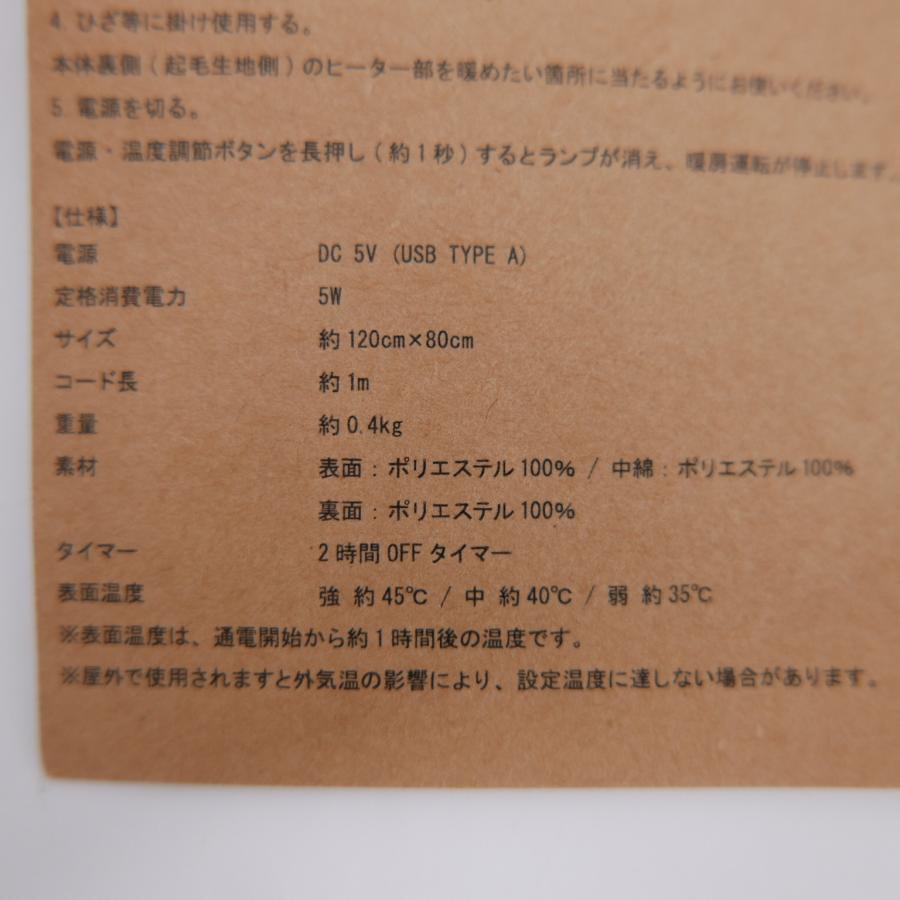 4. ひざ等に掛け使用する。
本体裏側(起毛生地側)のヒーター部を暖めたい箇所に当たるようにお使いください。
5. 電源を切る。
電源・温度調節ボタンを長押し(約1秒)するとランプが消え、暖房運転が停止します。
【仕様】
電源 DC 5V (USB TYPE A)
定格消費電力 5W
サイズ 約120cm×80cm
コード長 約1m
重量 約0.4kg
素材 表面:ポリエステル100% / 中綿:ポリエステル100%
裏面:ポリエステル100%
タイマー 2時間OFFタイマー
表面温度 強 約45℃ / 中 約40℃ / 弱 約35℃
※表面温度は、通電開始から約1時間後の温度です。
※屋外で使用されますと外気温の影響により、設定温度に達しない場合があります。